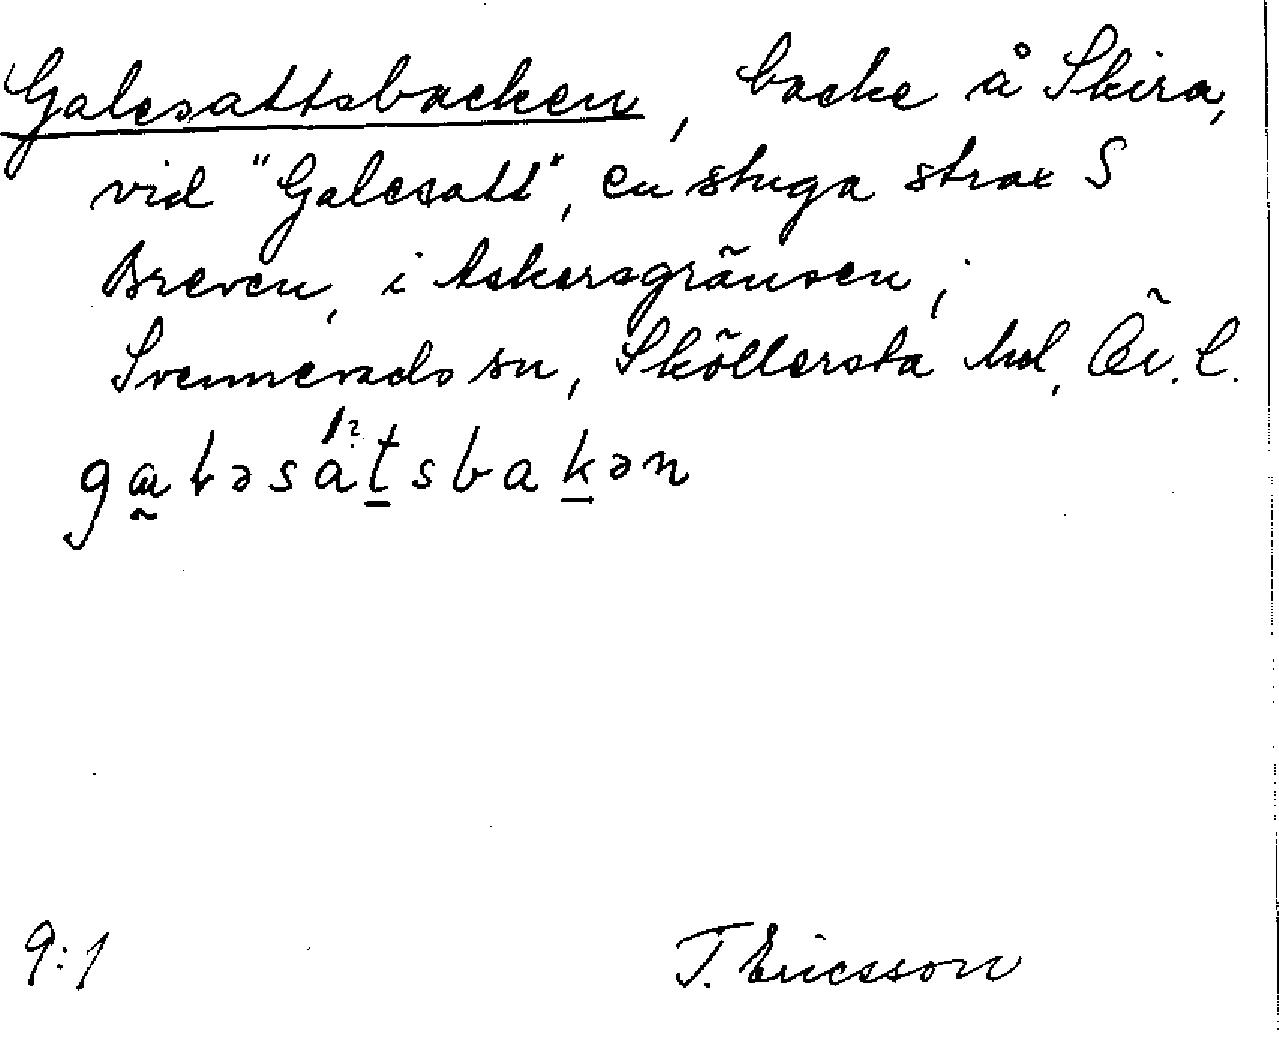 Galesattsbacken, backe å Skira,
vid "Galesatt", en stuga strax S
Breven, i Askersgränsen,
Svennevads sn, Sköllersta hd, Ör. l.
galəsatsbakən
9:1 T. Ericsson